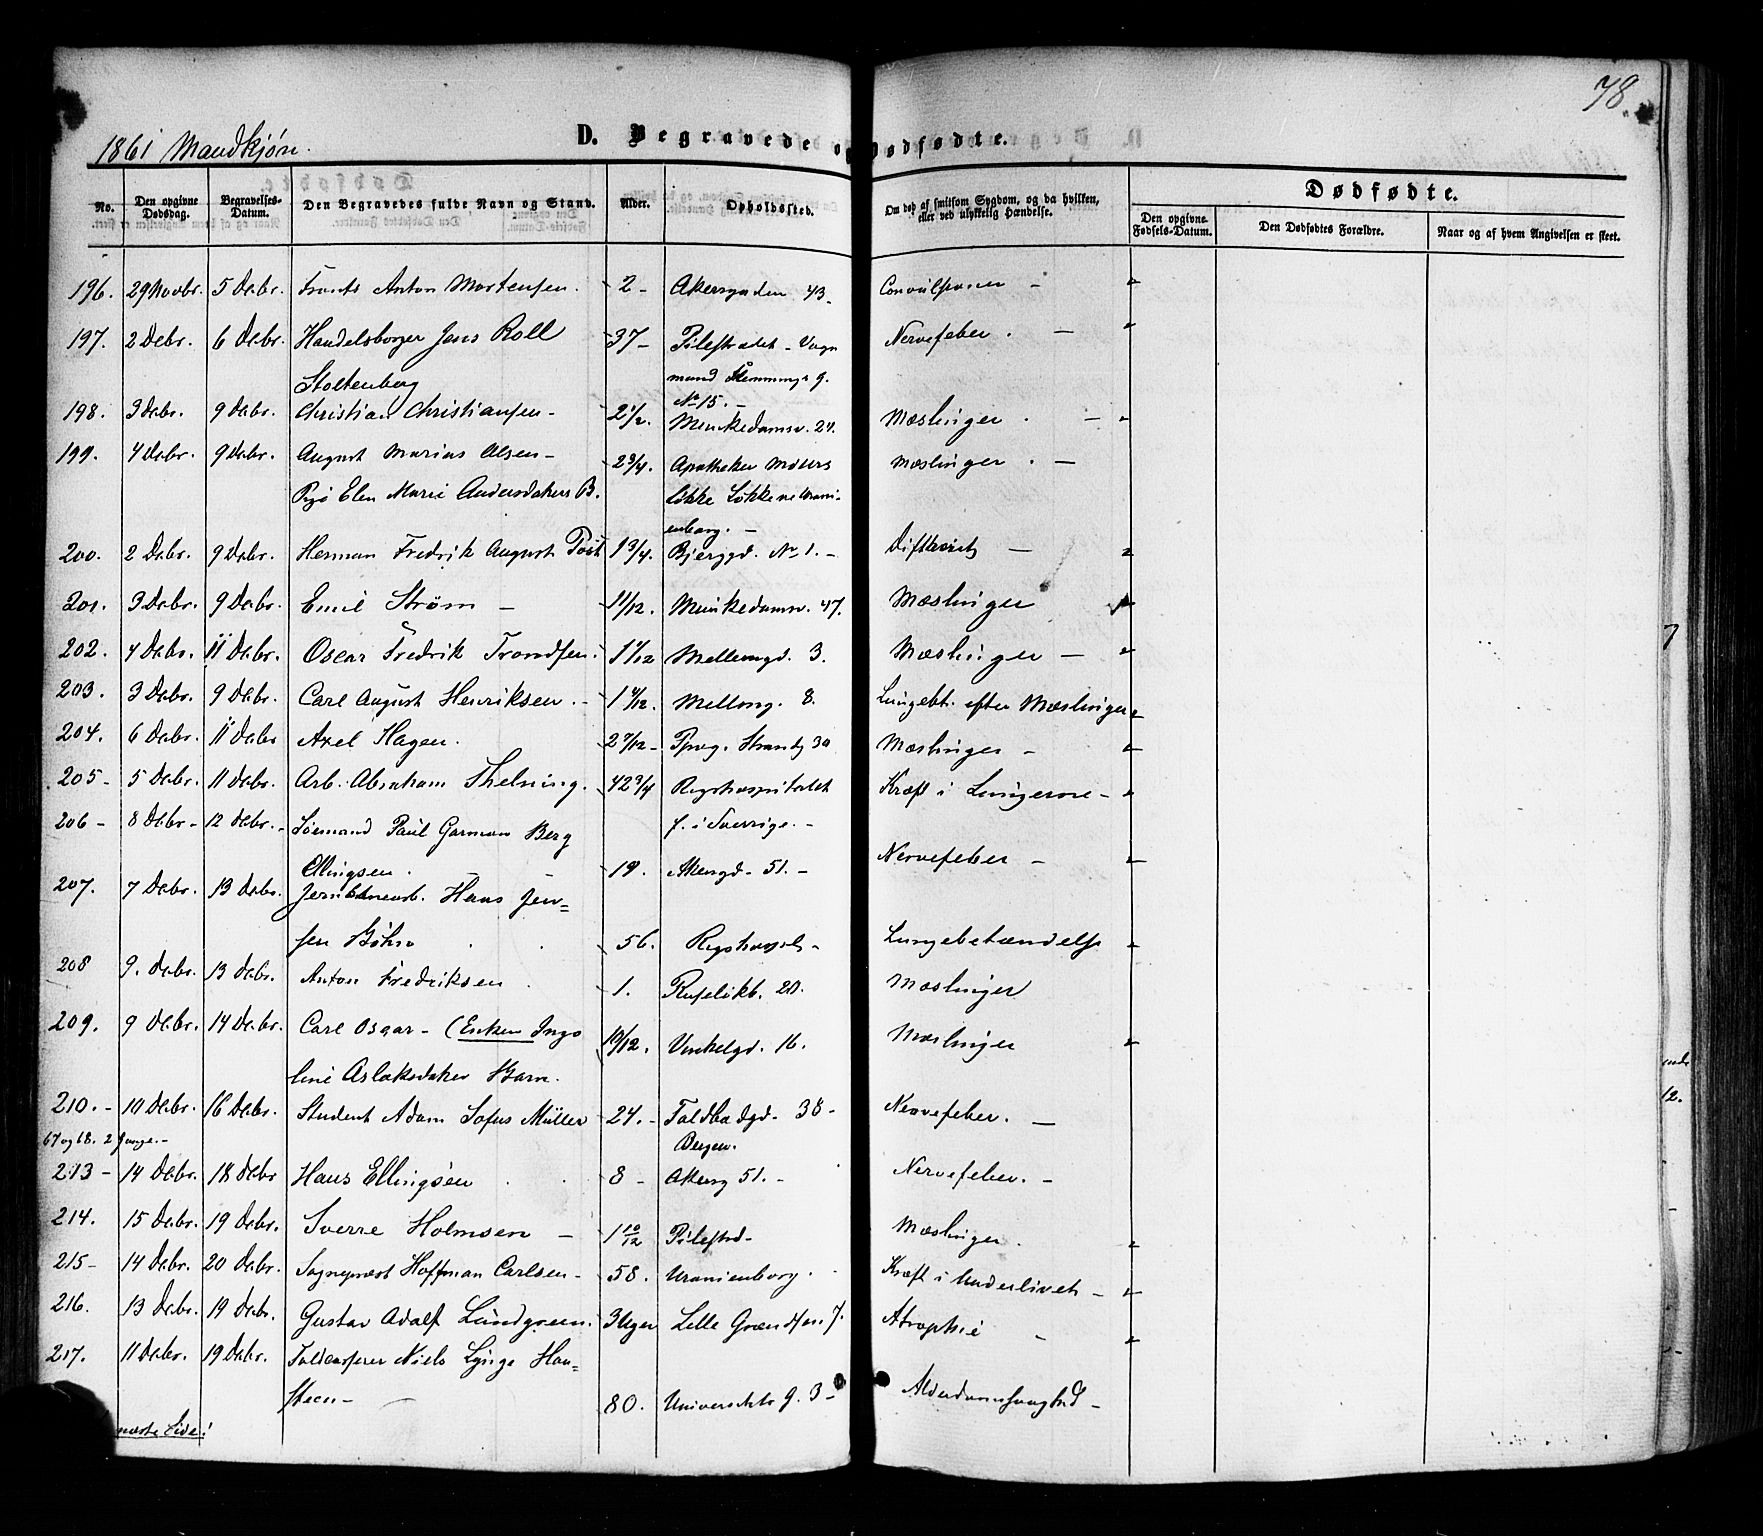 78.
1861 Mandkjøn.
D. Begravede og Dødfødte.
No. | Den opgivne Dødsdag. | Begravelses-Datum. | Den Begravedes fulde Navn og Stand. | Alder. | Opholdssted. | Om død af smitsom Sygdom, og da hvilken, eller ved ulykkelig Hændelse. | Dødfødte. | Den opgivne Fødsels-Datum. | Den Dødfødtes Forældre. | Naar og af hvem Angivelsen er skeet.
196. 29 Novbr. 5 Debr. Frants Anton Mortensen. 2 - Akersgaden 43. Convulsioner -
197. 2 Debr. 6 Debr. Handelsborger Jens Roll 37 - Pilestrædet - Vogn Nervefeber. -
Stoltenberg mand Flemmings g.
No 15. -
198. 3 Debr. 9 Debr. Christian Christiansen - 2 1/2. Munkedamsv. 24. Mæslinger. -
199. 4 Debr. 9 Debr. August Marius Olsen - 2 3/4. Apotheker Møllers Mæslinger. -
Pige Elen Marie Andersdatters B. Løkke
enborg. -
200. 2 Debr. 9 Debr. Herman Fredrik August Post 1 3/4. Bjerggd. No 1. - Diftherit -
201. 3 Debr. 9 Debr. Emil Strøm - 11/12. Munkedamsv. 47. Mæslinger
202. 4 Debr. 11 Debr. Oscar Fredrik Trondsen. Mellemgd. 3. Mæslinger -
203. 3 Debr. 9 Debr. Carl August Henriksen - Mellemg. 8. Lungebt. efter Mæslinger
204. 6 Debr. 11 Debr Axel Hagen. 2 7/12 - Pipvg. Strandg 30 Mæslinger -
205 - 5 Debr. 11 Debr. Arb. Abraham Thelning. 42 3/4 Rigshospitalet Kræft i Lungerne -
206 - 8 Debr. - 12 Debr. - Sømand Paul Garman Berg f. i Sverrige. -
Ellingsen. 19. Akersgd. 51. - Nervefeber -
207. 7 Debr. 13 Debr. Jernbanearb. Hans Jen=
sen Bøhn 56. Rigshospit - Lungebetændelse
208 9. Debr. 13 Debr. Anton Fredriksen 1. Ruseløkb. 20. Mæslinger
209. 9 Debr. 14 Debr. Carl Oscar - (Enken Inge 10/12. Vinkelgd. 16. Mæslinger
line Aslaksdatter Barn.
210. - 10 Debr. 16 Debr. Student Adam Sofus Müller 24. - Toldbodgd - 38 - Nervefeber. -
67 og 68. 2 Gange. - Bergen.
213 - 14 Debr. 18 Debr Hans Ellingsen 8 - Akersg 51. - Nervefeber. -
214. 15 Debr. 19 Debr. Sverre Holmsen - 1 10/12 Pilestrd - Mæslinger.
215 - 14 Debr. 20 Debr. Sogneprest Hoffman Carlsen - 58. Uranienborg. Kræft i Underlivet -
216. 13 Debr. 19 Debr. Gustav Adolf Lundgreen. 3 Uger Lille Grændsen. 7. Atrophie -
217. 11 Debr. 19 Debr. Toldkasserer Niels Lynge Han=
steen - 80. Universitets g. 3 - Alderdomssvaghed -
næste Side!